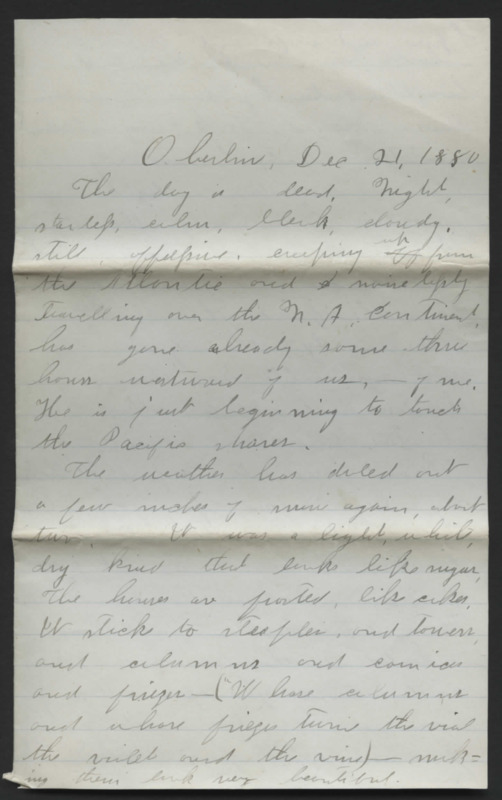 Oberlin, Dec 21, 1880.
The day is dead. Night,
starless, calm, bleak, cloudy,
still, creeping up from
the Atlantic and noiselessly
Travelling over the N. A. Continent,
has gone already some three
hours westward of us, — of me.
He is just beginning to touch
the Pacific shores.
The weather has doled out
a few inches of snow again, about
two. It was a light, white,
dry kind that looks like sugar,
The houses are frosted, like cakes.
It sticks to steeples, and towers,
and columns and cornices
and friezes — (Whose columns
and whose friezes twine the vial
the violet and the vine) — mak=
ing them look very beautiful.